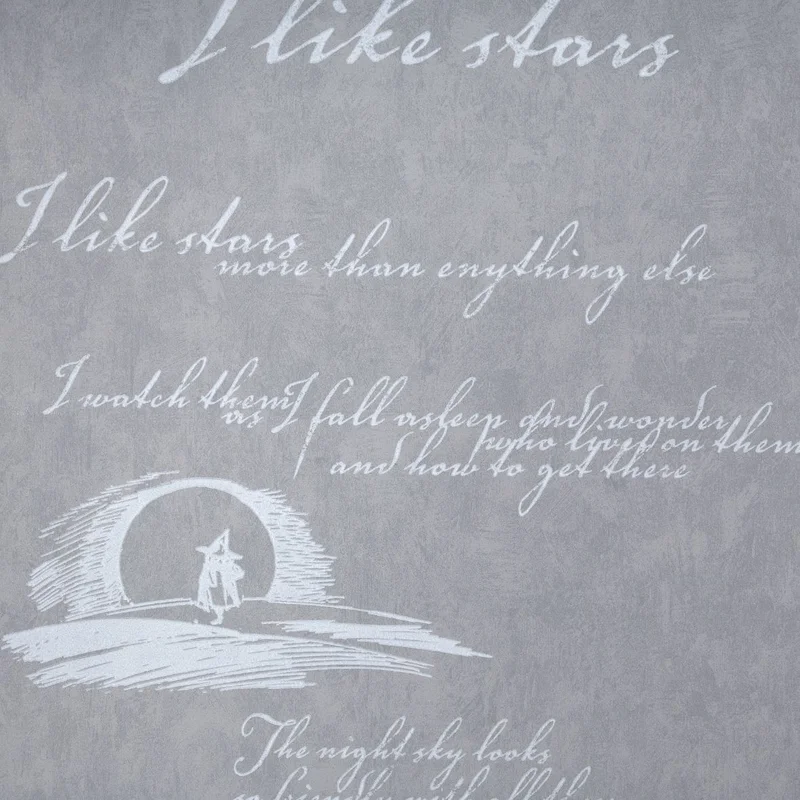 I like stars
I like stars
more than enything else
I watch them
as I fall asleep and wonder
who lives on them
and how to get there
The night sky looks
so friendly with all the